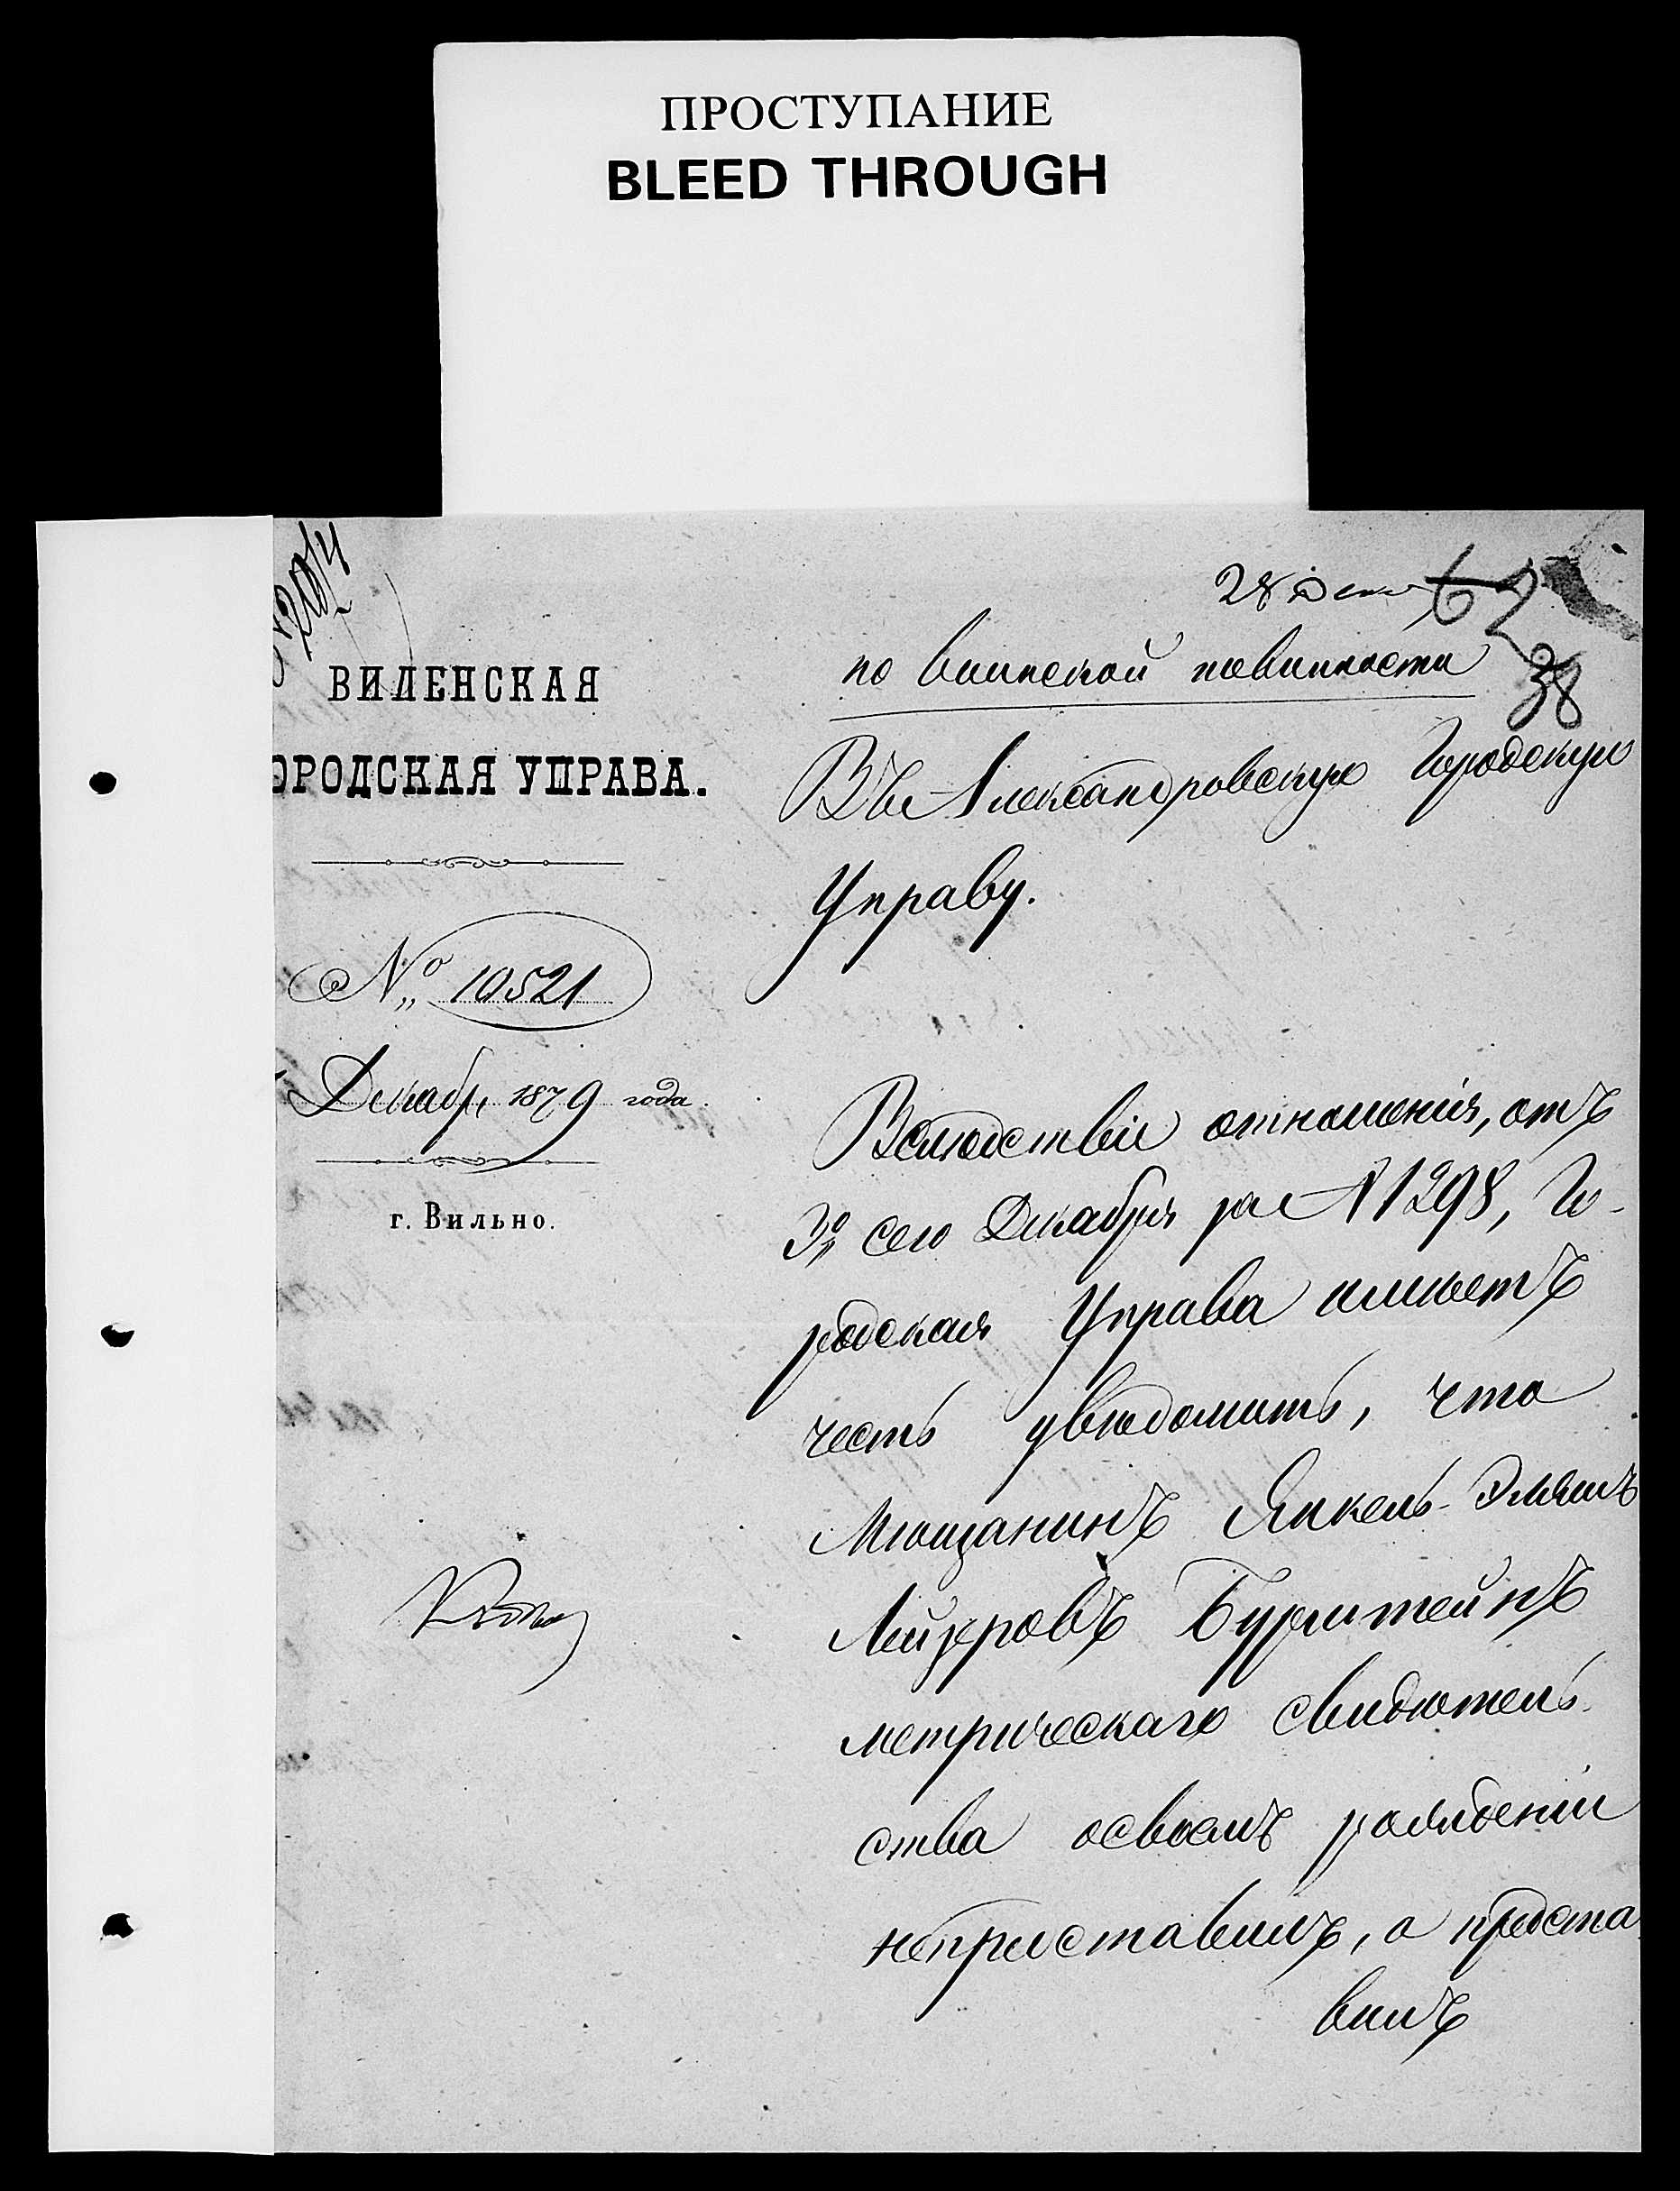 ПРОСТУПАНИЕ
BLEED THROUGH
28 Дек
62
38
по воинской повинности
ВИЛЕНСКАЯ
ОРОДСКАЯ УПРАВА.
№ 10521
Декабр 1879 года.
г. Вильно.
Въ Александровскую Городскую
Управу.
Вслѣдствіе отношенія, отъ
3го сего Декабря за № 1298, Го-
родская Управа имѣетъ
честь увѣдомить, что
Мѣщанинъ Янкель-Эльяшъ
Лейзеровъ Бурштейнъ
метрическаго свидѣтель-
ства освоемъ рожденіи
непредставилъ, а предста
вилъ